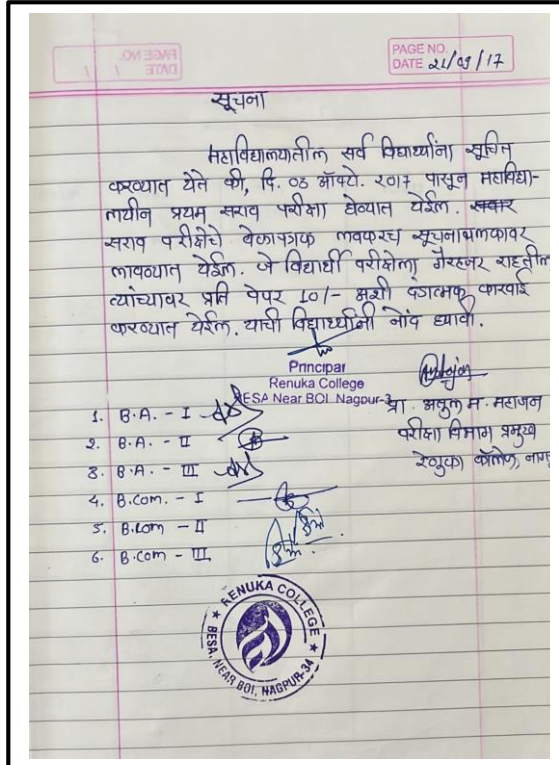 PAGE NO.
DATE 21/09/17
सूचना
महाविद्यालयातील सर्व विद्यार्थ्यांना सूचित
करण्यात येते की, दि. ०३ ऑक्टो. २०१७ पासून महाविद्या-
लयीन प्रथम सराव परीक्षा घेण्यात येईल.
सराव परीक्षेचे वेळापत्रक लवकरच सूचनाफलकावर
लावण्यात येईल. जे विद्यार्थी परीक्षेला गैरहजर राहतील
त्यांच्यावर प्रति पेपर 10/- अशी दंडात्मक कारवाई
करण्यात येईल. याची विद्यार्थ्यांनी नोंद घ्यावी.
Principal
Renuka College
BESA Near BOI, Nagpur-3
प्रा. अतुल म. महाजन
परीक्षा विभाग प्रमुख
रेणुका कॉलेज, नाग
1. B.A. - I
2. B.A. - II
3. B.A. - III
4. B.Com. - I
5. B.Com - II
6. B.Com - III
RENUKA COLLEGE
BESA, NEAR BOI, NAGPUR-34